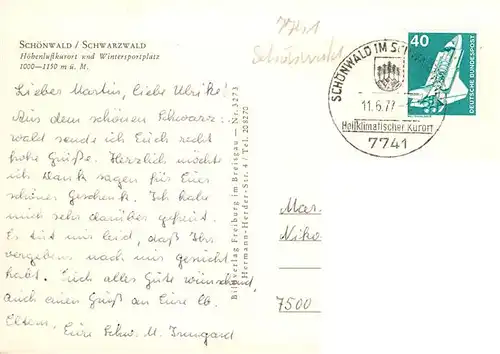 SCHÖNWALD / SCHWARZWALD
Höhenluftkurort und Wintersportplatz
1000—1150 m ü. M.
Lieber Martin, liebe Ulrike!
Aus dem schönen Schwarz-
wald sende ich Euch recht
frohe Grüße. Herzlich möchte
ich Dank sagen für Euer
schönes Geschenk. Ich habe
mich sehr darüber gefreut.
Es tut mir leid, daß Ihr
vergebens nach mir gesucht
habt. Euch alles Gute wünschend,
auch einen Gruß an Eure lb.
Eltern, Eure Schw. M. Irmgard
Bildverlag Freiburg im Breisgau — Nr. 3273
Hermann-Herder-Str. 4 / Tel. 208270
SCHÖNWALD IM SCHWARZW
11.6.77
Heilklimatischer Kurort
7741
40
DEUTSCHE BUNDESPOST
Mar.
Niko
7500